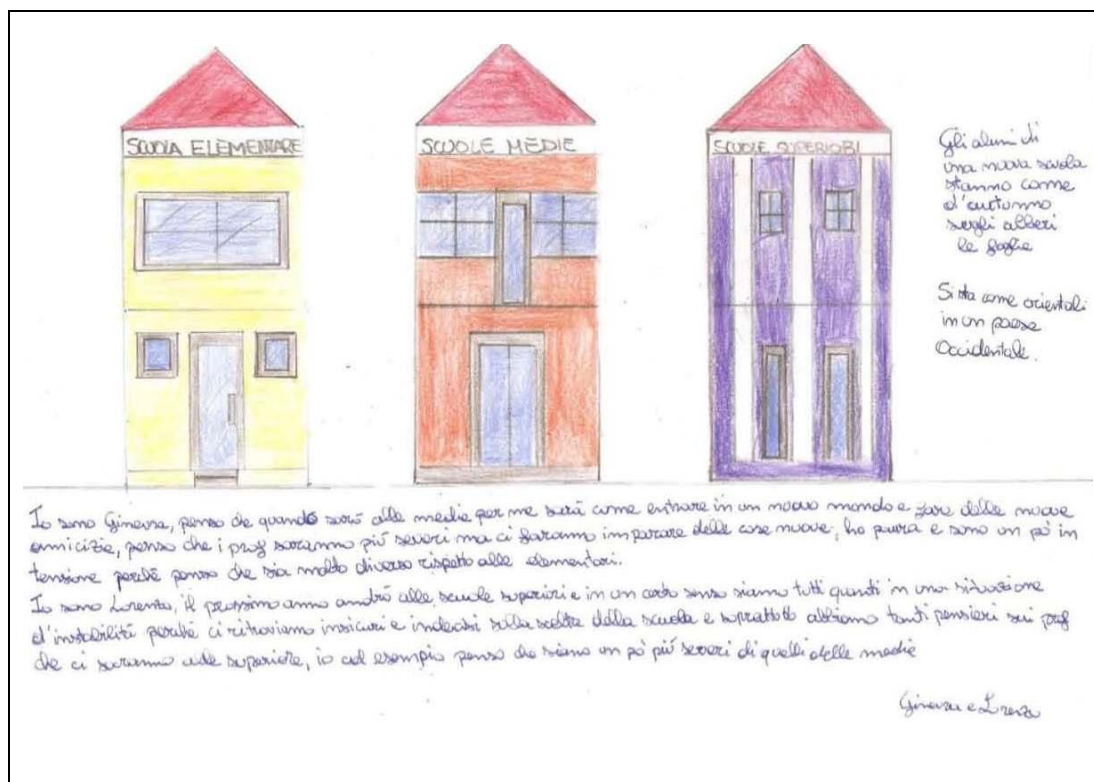 SCUOLA ELEMENTARE
SCUOLE MEDIE
SCUOLE SUPERIORI
Gli alunni di
una nuova scuola
stanno come
d'autunno
sugli alberi
le foglie
Si sta come orientali
in un paese
Occidentale.
Io sono Ginevra, penso che quando sarò alle medie per me sarà come entrare in un nuovo mondo e fare delle nuove
amicizie, penso che i prof saranno più severi ma ci faranno imparare delle cose nuove, ho paura e sono un pò in
tensione perché penso che sia molto diverso rispetto alle elementari.
Io sono Lorenza, il prossimo anno andrò alle scuole superiori e in un certo senso siamo tutti quanti in una situazione
d'instabilità perché ci ritroviamo insicuri e indecisi sulla scelta della scuola e soprattutto abbiamo tanti pensieri sui prof
che ci saranno alle superiore, io ad esempio penso che siano un pò più severi di quelli delle medie
Ginevra e Lorenza